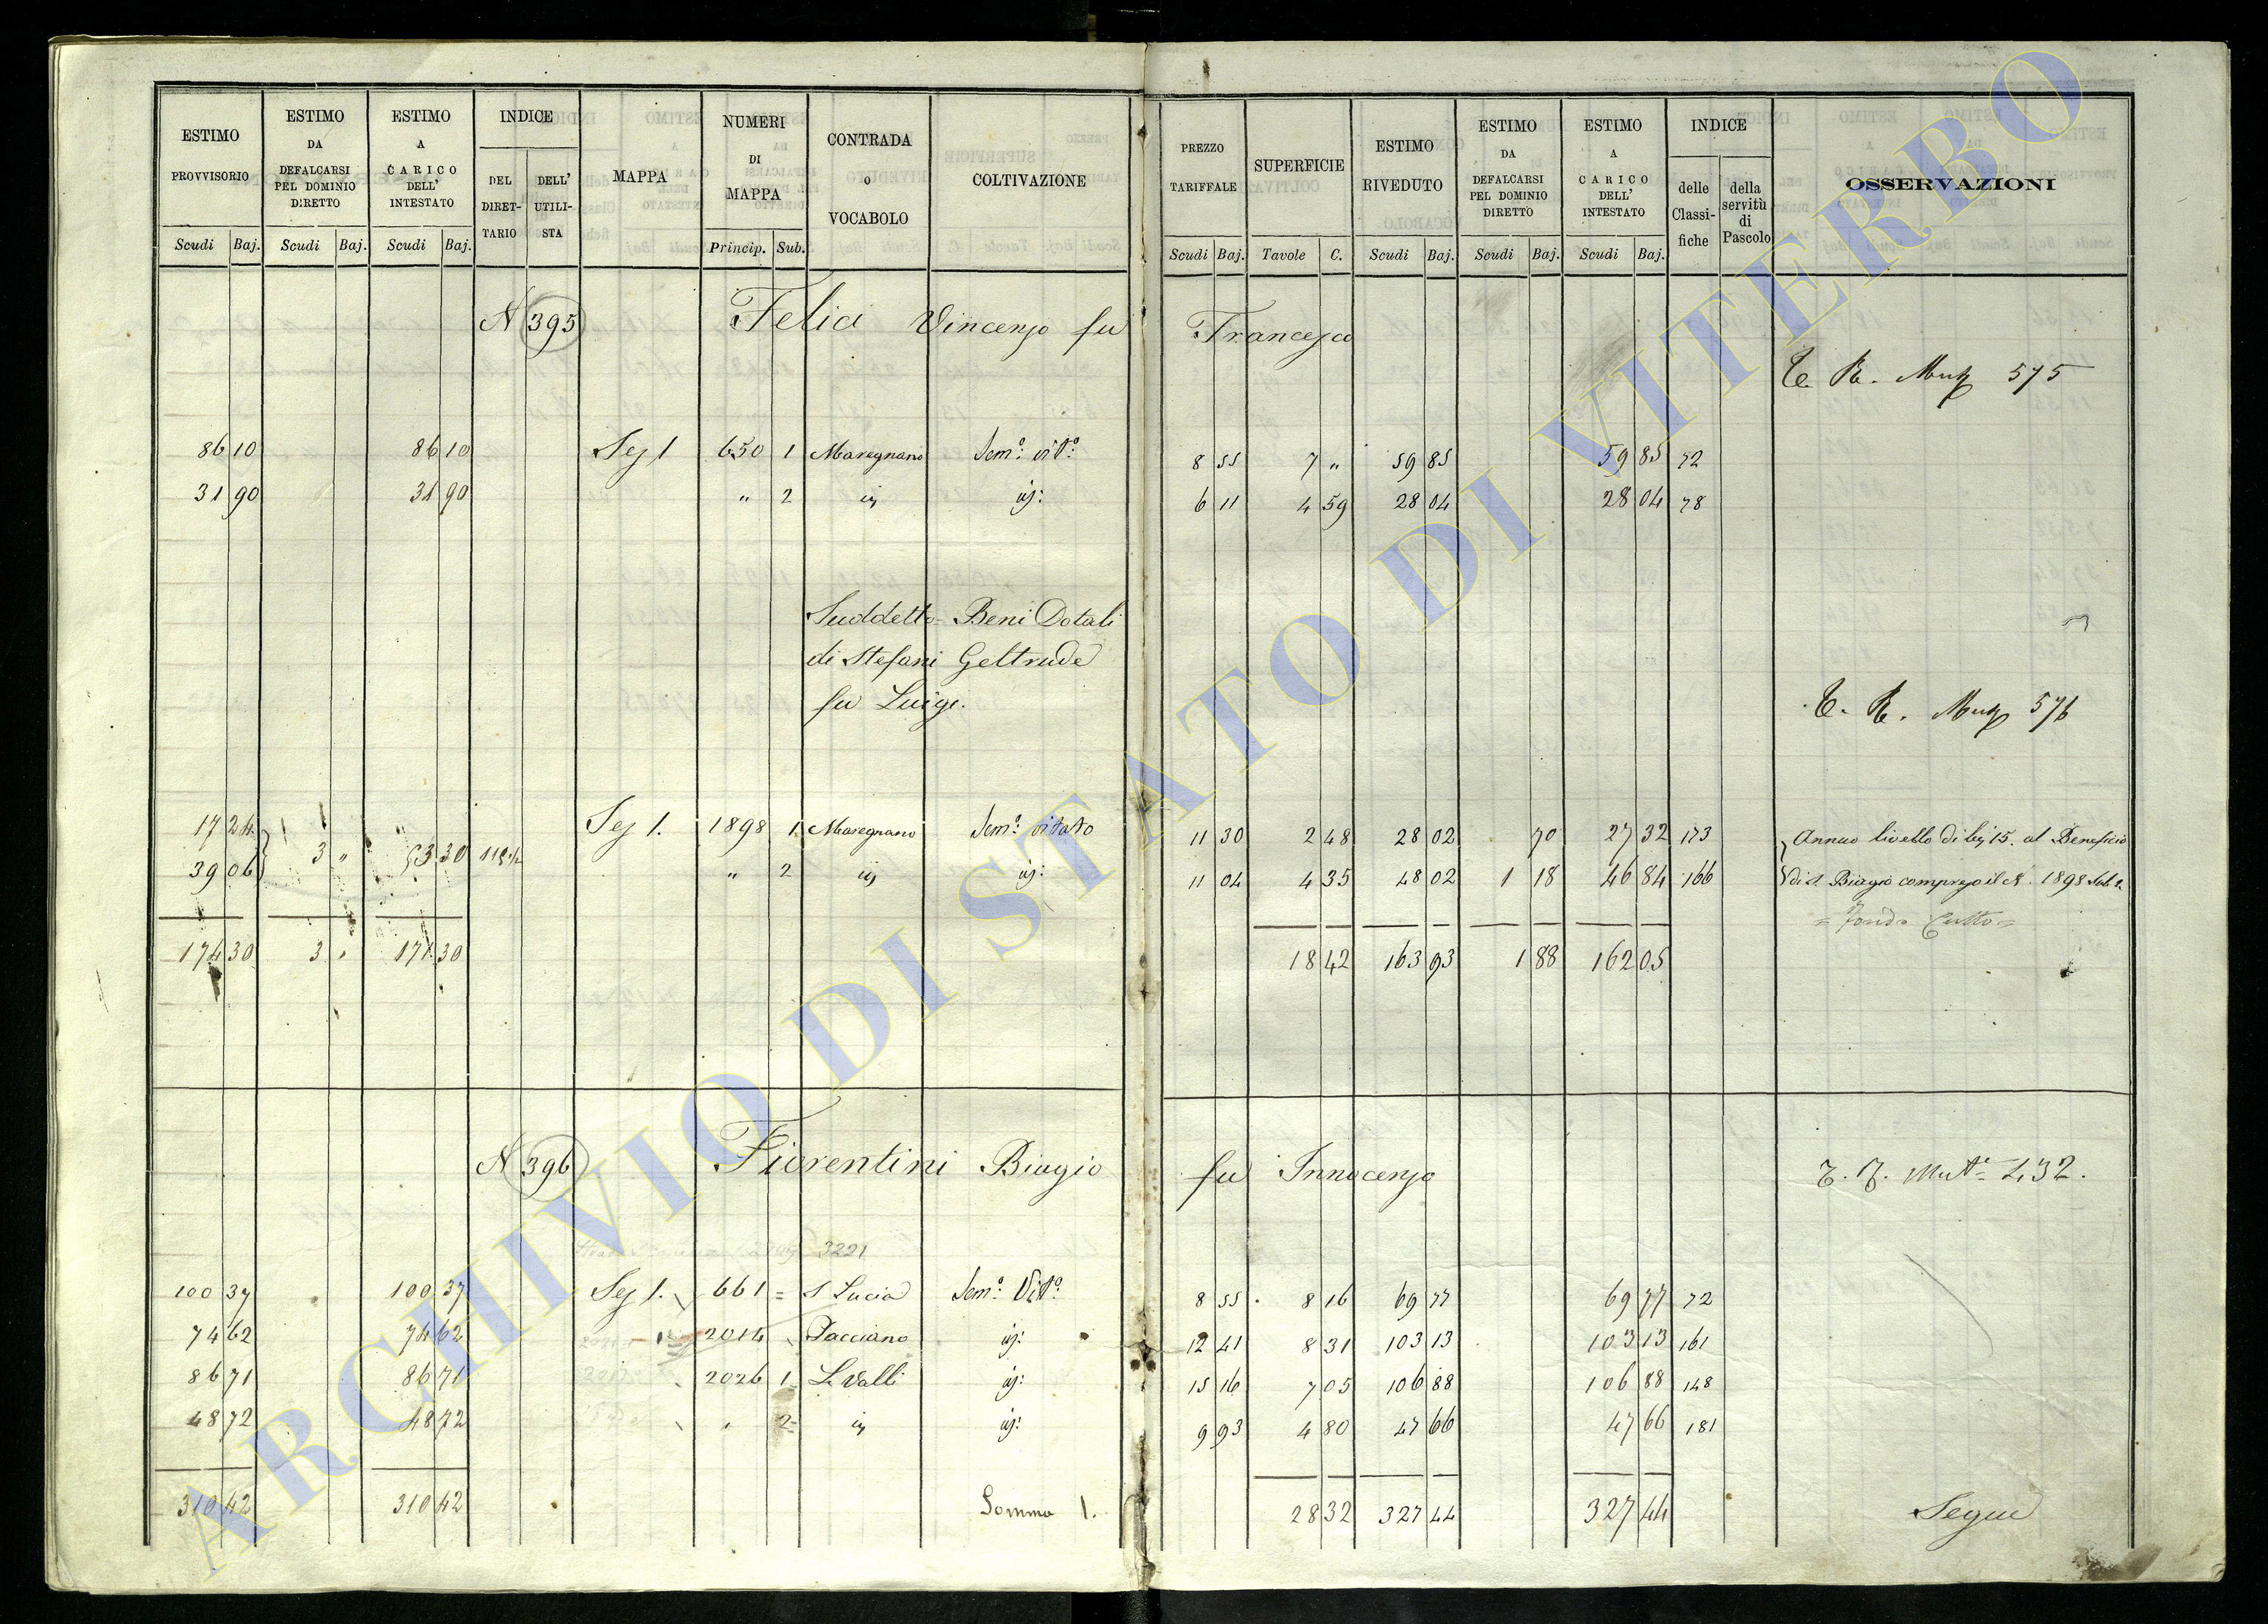 ESTIMO PROVVISORIO Scudi Baj.
ESTIMO DA DEFALCARSI PEL DOMINIO DIRETTO Scudi Baj.
ESTIMO A CARICO DELL' INTESTATO Scudi Baj.
INDICE DEL DIRET-TARIO DELL' UTILI-STA
MAPPA
NUMERI DI MAPPA Princip. Sub.
CONTRADA o VOCABOLO
COLTIVAZIONE
PREZZO TARIFFALE Scudi Baj.
SUPERFICIE Tavole C.
ESTIMO RIVEDUTO Scudi Baj.
ESTIMO DA DEFALCARSI PEL DOMINIO DIRETTO Scudi Baj.
ESTIMO A CARICO DELL' INTESTATO Scudi Baj.
INDICE delle Classi-fiche della servitù di Pascolo
OSSERVAZIONI
N 395 Felici Vincenzo fu Francesco
T. R. Mut 575
86 10 86 10 Sez 1 650 1 Maregnano Sem.o vit.o 8 55 7 " 59 85 59 85 72
31 90 31 90 " 2 id: 6 11 4 59 28 04 28 04 78
Suddetto = Beni Dotali
di Stefani Geltrude
fu Luigi.
T. R. Mut 576
17 24 Sez 1. 1898 1 Maregnano Sem.o vitato 11 30 2 48 28 02 70 27 32 173 Annuo livello di bj 15. al Beneficio
39 06 3 " 53 30 " 2 id: 11 04 4 35 48 02 1 18 46 84 166 di S. Biagio compreso il N. 1898 Sub 2.
= Fondo Culto =
174 30 3 " 171 30 18 42 163 93 1 88 162 05
N 396 Fiorentini Biagio fu Innocenzo
Mut.e 432.
3221
100 37 100 37 Sez 1. 661 = S Lucia Sem.o Vit.o 8 55 8 16 69 77 69 77 72
74 62 74 62 2014 Pacciano id: 12 41 8 31 103 13 103 13 161
86 71 86 71 2026 1 Le Valli id: 15 16 7 05 106 88 106 88 148
48 72 48 72 " 2 id: 9 93 4 80 47 66 47 66 181
310 42 310 42 Somma 1. 28 32 327 44 327 44 Segue
ARCHIVIO DI STATO DI VITERBO